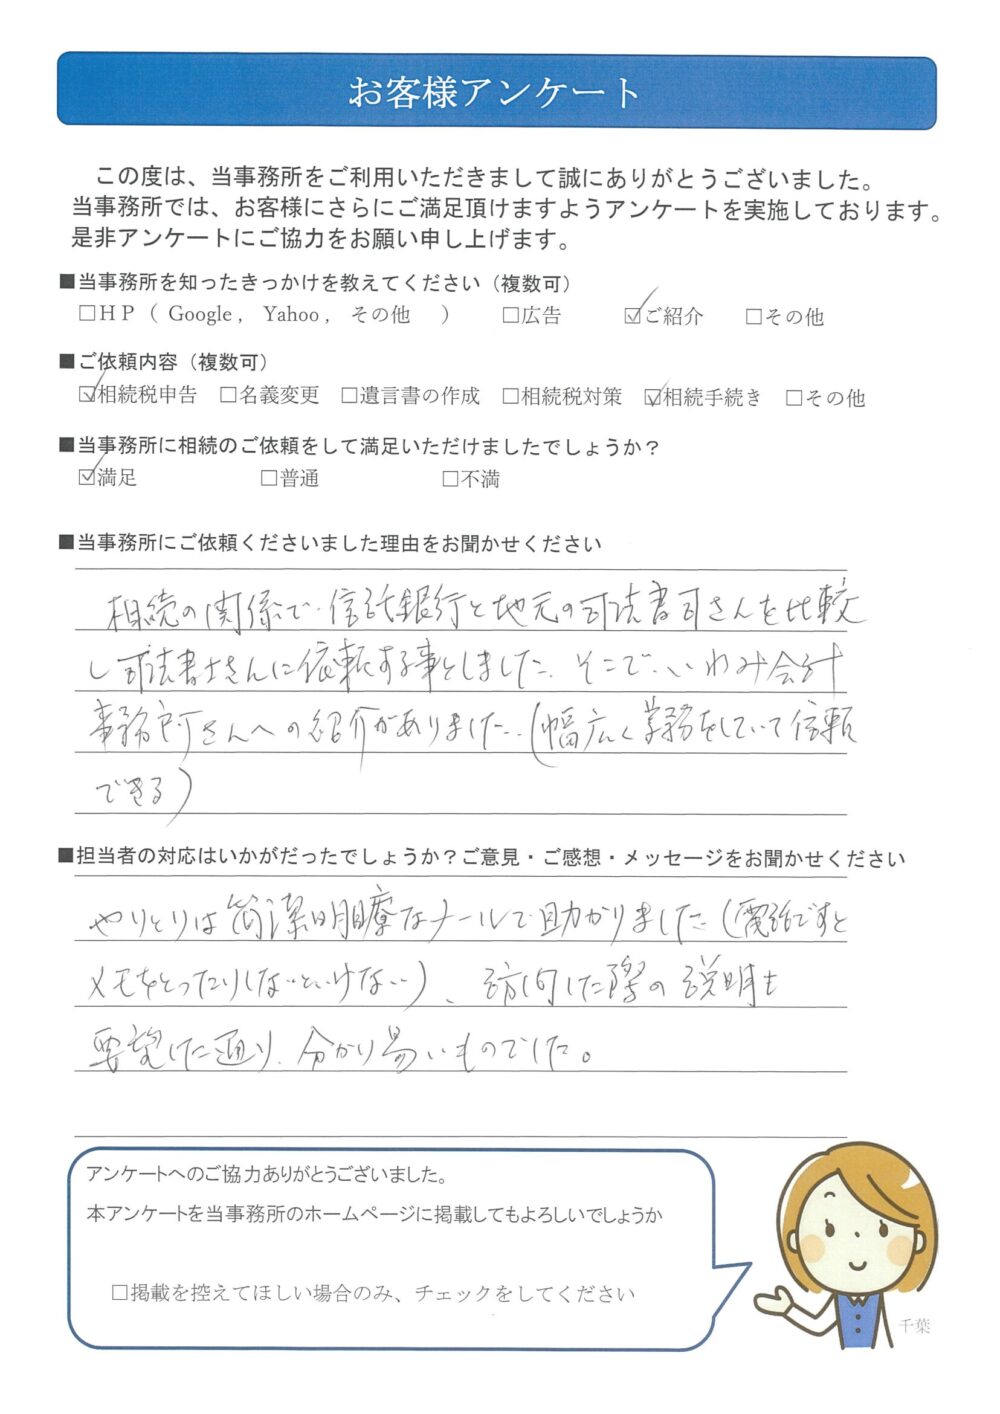 お客様アンケート
この度は、当事務所をご利用いただきまして誠にありがとうございました。
当事務所では、お客様にさらにご満足頂けますようアンケートを実施しております。
是非アンケートにご協力をお願い申し上げます。
■当事務所を知ったきっかけを教えてください（複数可）
□HP（ Google , Yahoo , その他 ） □広告 ☑ご紹介 □その他
■ご依頼内容（複数可）
☑相続税申告 □名義変更 □遺言書の作成 □相続税対策 ☑相続手続き □その他
■当事務所に相続のご依頼をして満足いただけましたでしょうか？
☑満足 □普通 □不満
■当事務所にご依頼くださいました理由をお聞かせください
相続の関係で、信託銀行と地元の司法書司さんを比較
し司法書士さんに依頼する事としました。そこで、いわみ会計
事務所さんへの紹介がありました。(幅広く業務をしていて信頼
できる)
■担当者の対応はいかがだったでしょうか？ご意見・ご感想・メッセージをお聞かせください
やりとりは簡潔明瞭なメールで助かりました(電話ですと
メモをとったりしないといけない)、訪問した際の説明も
要望した通り、分かり易いものでした。
アンケートへのご協力ありがとうございました。
本アンケートを当事務所のホームページに掲載してもよろしいでしょうか
□掲載を控えてほしい場合のみ、チェックをしてください
千葉